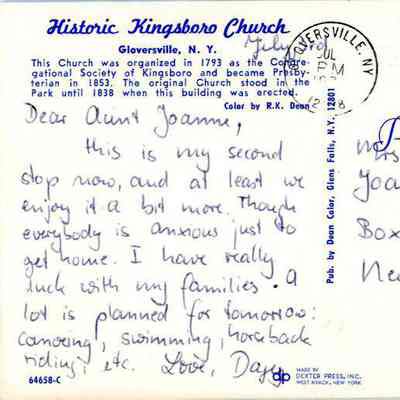 Historic Kingsboro Church
Gloversville, N. Y.
This Church was organized in 1793 as the Congre-
gational Society of Kingsboro and became Presby-
terian in 1853. The original Church stood in the
Park until 1838 when this building was erected.
Color by R.K. Dean
July
GLOVERSVILLE, NY
JUL
PM
12
8
Dear Aunt Joanne,
this is my second
stop now, and at least we
enjoy it a bit more. Though
everybody is anxious just to
get home. I have really
luck with my families. A
lot is planned for tomorrow:
canoeing, swimming, horseback
riding, etc. Love,
Pub. by Dean Color, Glens Falls, N.Y. 12801
Mrs
Joa
Box
Ne
64658-C
dp
MADE BY
DEXTER PRESS, INC.
WEST NYACK, NEW YORK